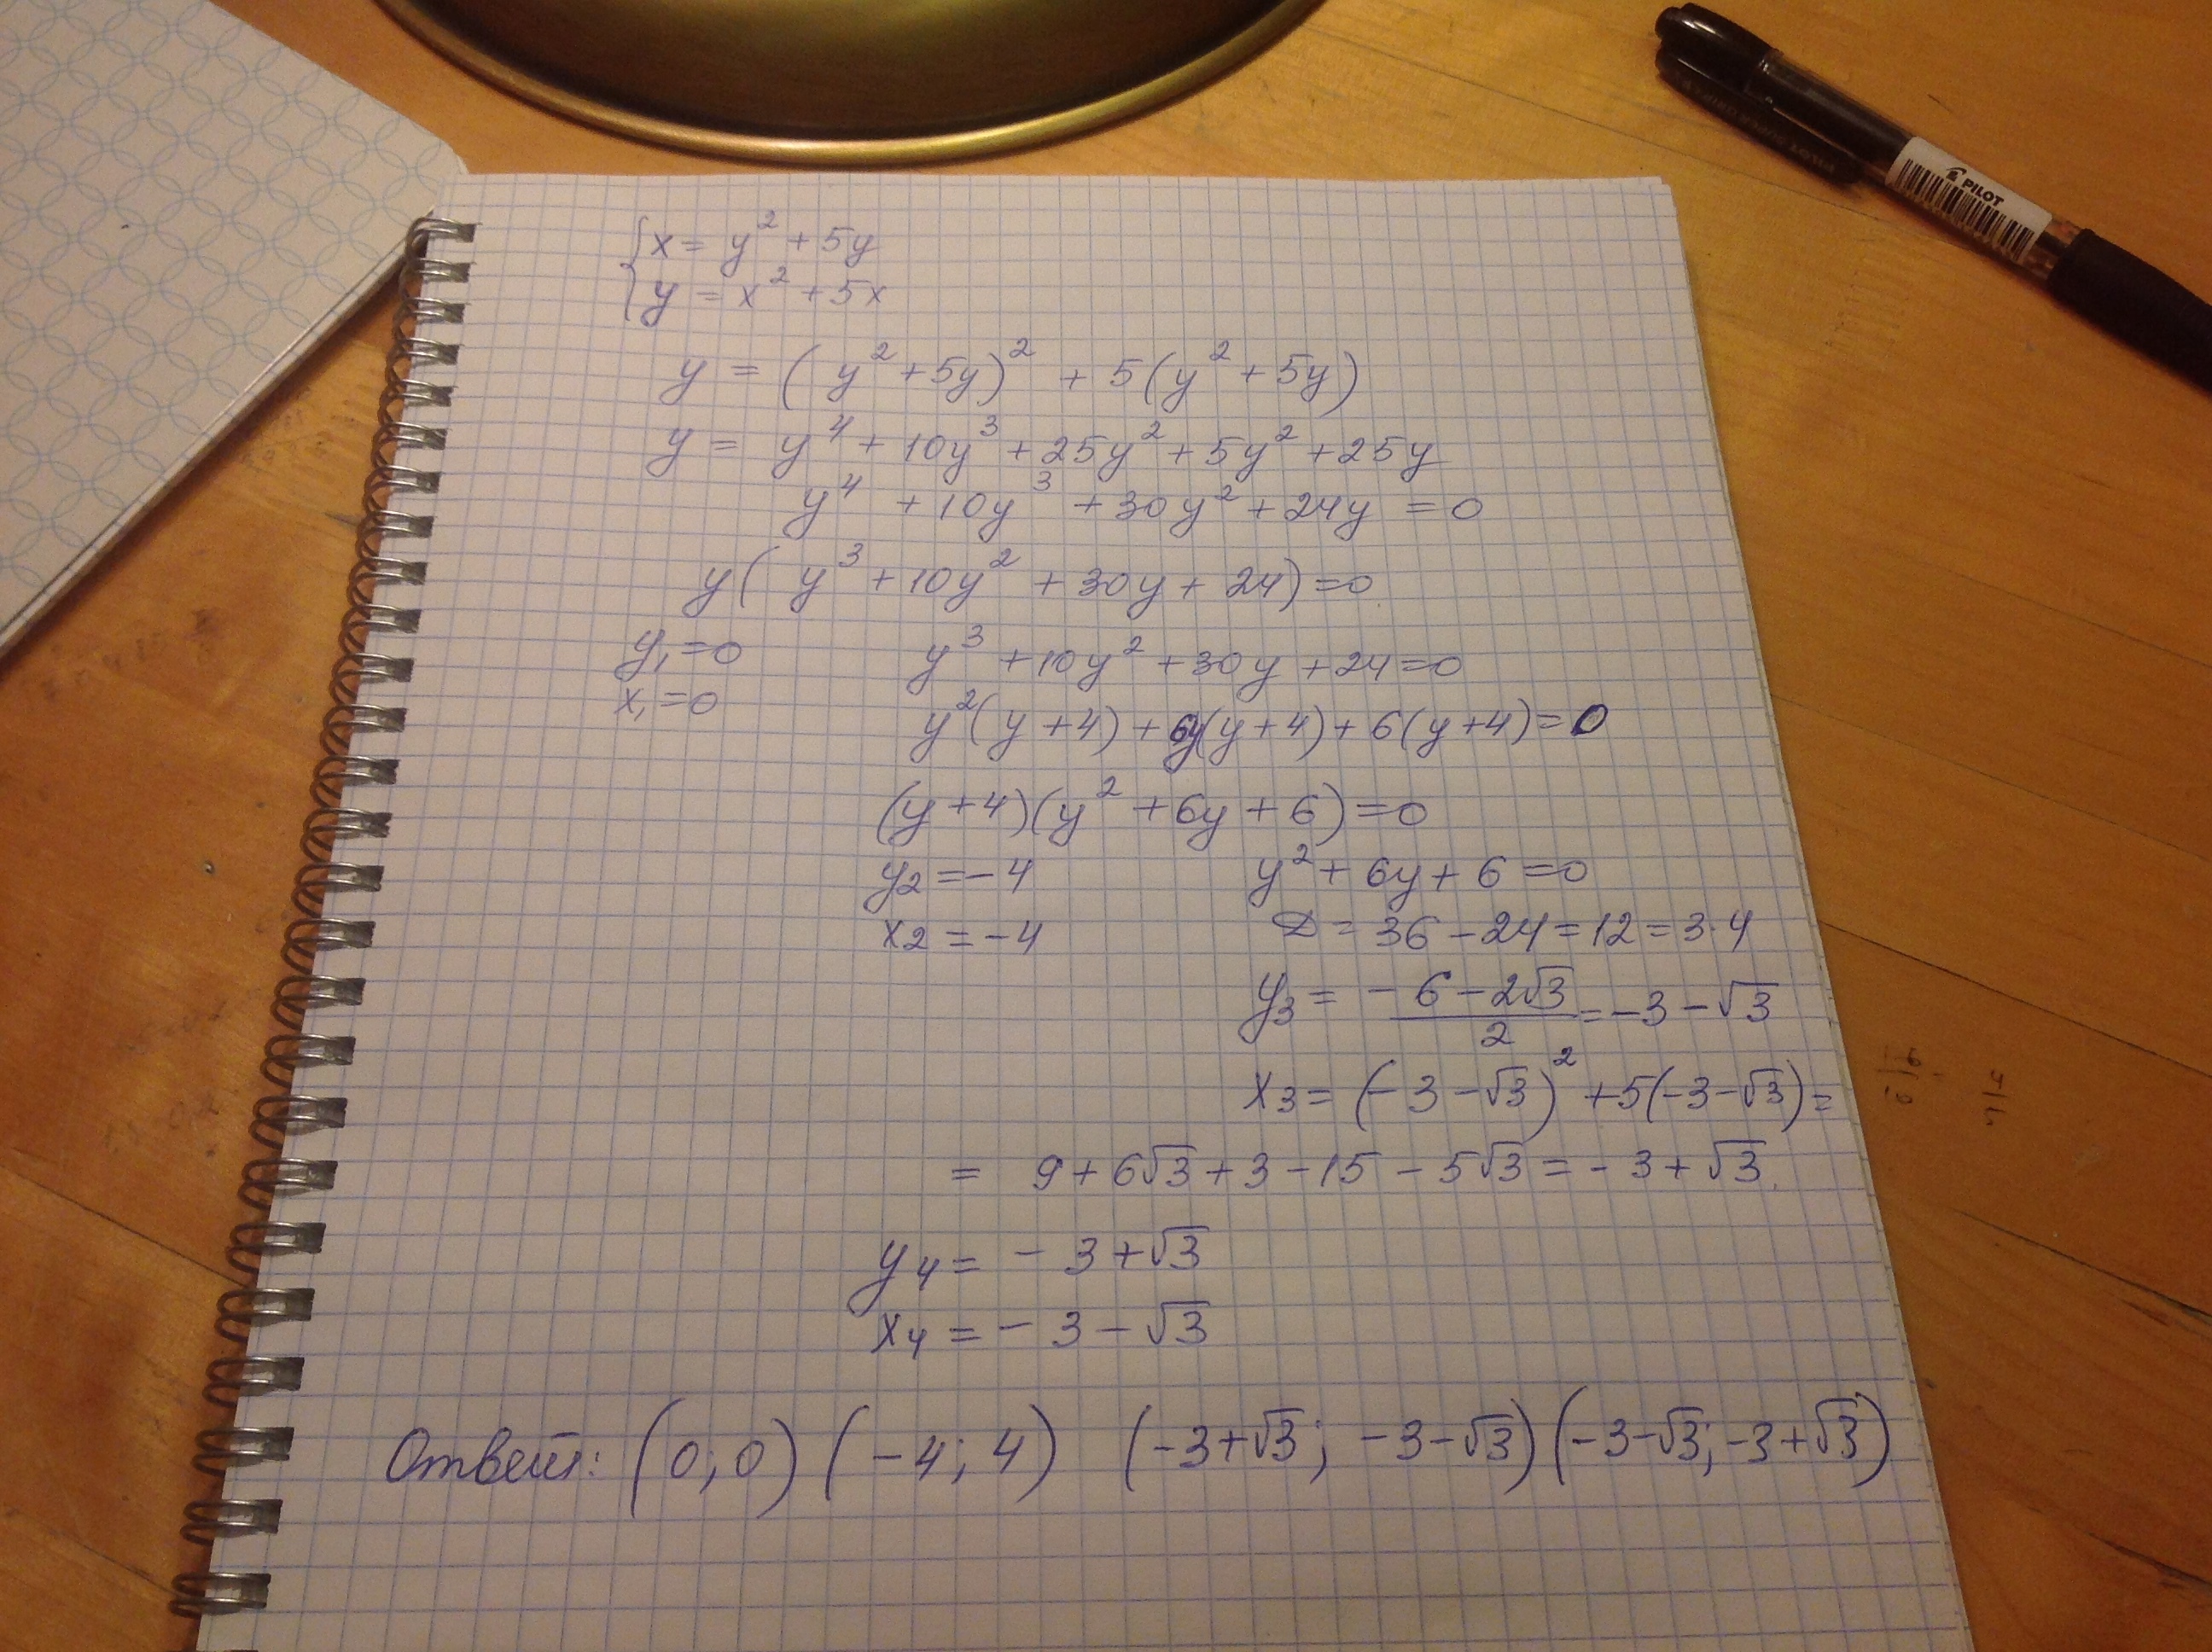 PILOT
{ x = y² + 5y
y = x² + 5x
y = (y² + 5y)² + 5(y² + 5y)
y = y⁴ + 10y³ + 25y² + 5y² + 25y
y⁴ + 10y³ + 30y² + 24y = 0
y(y³ + 10y² + 30y + 24) = 0
y₁ = 0 y³ + 10y² + 30y + 24 = 0
x₁ = 0
y²(y + 4) + 6y(y + 4) + 6(y + 4) = 0
(y + 4)(y² + 6y + 6) = 0
y₂ = -4 y² + 6y + 6 = 0
x₂ = -4 D = 36 - 24 = 12 = 3·4
y₃ = (-6 - 2√3)/2 = -3 - √3
x₃ = (-3 - √3)² + 5(-3 - √3) =
= 9 + 6√3 + 3 - 15 - 5√3 = -3 + √3.
y₄ = -3 + √3
x₄ = -3 - √3
Ответ: (0; 0) (-4; 4) (-3+√3; -3-√3) (-3-√3; -3+√3)